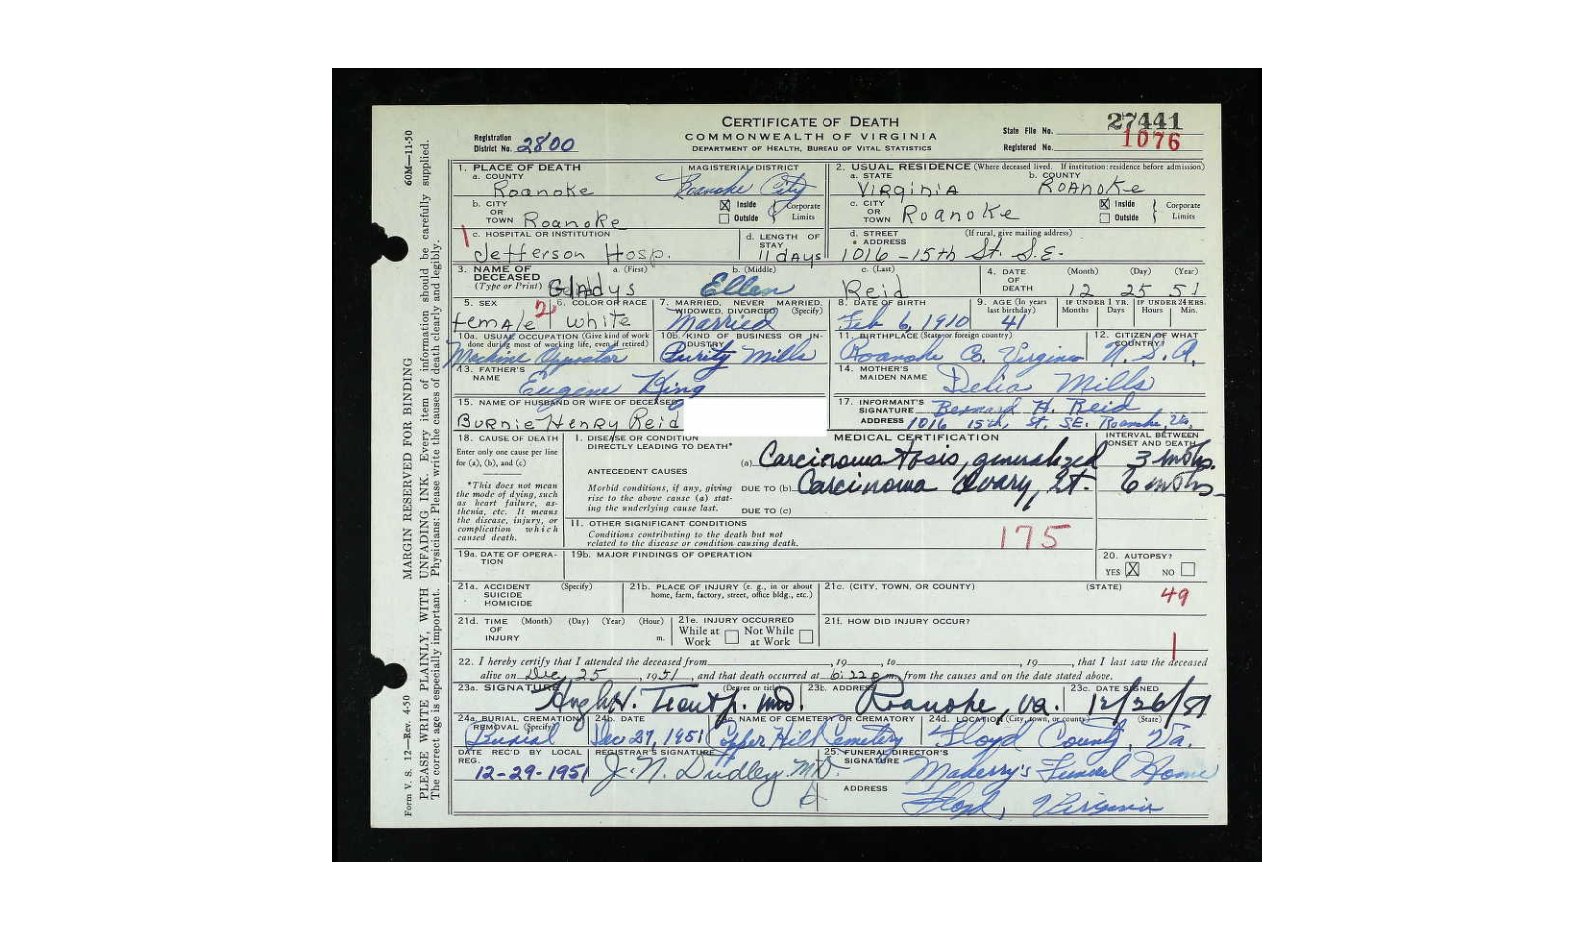 CERTIFICATE OF DEATH
COMMONWEALTH OF VIRGINIA
DEPARTMENT OF HEALTH, BUREAU OF VITAL STATISTICS
Registration District No. 2800
State File No. 27441
Registered No. 1076
60M—11-50
MARGIN RESERVED FOR BINDING
Form V. S. 12—Rev. 4-50
PLEASE WRITE PLAINLY, WITH UNFADING INK. Every item of information should be carefully supplied.
The correct age is especially important. Physicians: Please write the causes of death clearly and legibly.
1. PLACE OF DEATH
a. COUNTY Roanoke
MAGISTERIAL DISTRICT Roanoke City
2. USUAL RESIDENCE (Where deceased lived. If institution: residence before admission)
a. STATE Virginia
b. COUNTY Roanoke
b. CITY OR TOWN Roanoke
Inside Outside Corporate Limits
c. CITY OR TOWN Roanoke
Inside Outside Corporate Limits
c. HOSPITAL OR INSTITUTION Jefferson Hosp.
d. LENGTH OF STAY 11 days
d. STREET ADDRESS (If rural, give mailing address) 1016 - 15th St. S.E.
3. NAME OF DECEASED (Type or Print)
a. (First) Gladys
b. (Middle) Ellen
c. (Last) Reid
4. DATE OF DEATH (Month) (Day) (Year) 12 25 51
5. SEX female
6. COLOR OR RACE white
7. MARRIED, NEVER MARRIED, WIDOWED, DIVORCED (Specify) Married
8. DATE OF BIRTH Feb 6, 1910
9. AGE (In years last birthday) 41
IF UNDER 1 YR. Months Days
IF UNDER 24 HRS. Hours Min.
10a. USUAL OCCUPATION (Give kind of work done during most of working life, even if retired) Machine Operator
10b. KIND OF BUSINESS OR INDUSTRY Purity Mills
11. BIRTHPLACE (State or foreign country) Roanoke Co. Virginia
12. CITIZEN OF WHAT COUNTRY? U. S. A.
13. FATHER'S NAME Eugene King
14. MOTHER'S MAIDEN NAME Delia Mills
15. NAME OF HUSBAND OR WIFE OF DECEASED Burnie Henry Reid
17. INFORMANT'S SIGNATURE Bernard H. Reid
ADDRESS 1016 15th, St. SE. Roanoke, Va.
18. CAUSE OF DEATH
Enter only one cause per line for (a), (b), and (c)
*This does not mean the mode of dying, such as heart failure, asthenia, etc. It means the disease, injury, or complication which caused death.
MEDICAL CERTIFICATION
INTERVAL BETWEEN ONSET AND DEATH
I. DISEASE OR CONDITION DIRECTLY LEADING TO DEATH*
(a) Carcinomatosis, generalized 3 mths.
ANTECEDENT CAUSES
Morbid conditions, if any, giving rise to the above cause (a) stating the underlying cause last.
DUE TO (b) Carcinoma Ovary, Lt. 6 mths.
DUE TO (c)
II. OTHER SIGNIFICANT CONDITIONS
Conditions contributing to the death but not related to the disease or condition causing death.
175
19a. DATE OF OPERATION
19b. MAJOR FINDINGS OF OPERATION
20. AUTOPSY?
YES NO
21a. ACCIDENT SUICIDE HOMICIDE (Specify)
21b. PLACE OF INJURY (e. g., in or about home, farm, factory, street, office bldg., etc.)
21c. (CITY, TOWN, OR COUNTY) (STATE)
49
21d. TIME OF INJURY (Month) (Day) (Year) (Hour) m.
21e. INJURY OCCURRED While at Work Not While at Work
21f. HOW DID INJURY OCCUR?
22. I hereby certify that I attended the deceased from , 19 , to , 19 , that I last saw the deceased
alive on Dec, 25, 1951, and that death occurred at 6:22 p m., from the causes and on the date stated above.
23a. SIGNATURE (Degree or title) Hugh H. Trout Jr. MD.
23b. ADDRESS Roanoke, Va.
23c. DATE SIGNED 12/26/51
24a. BURIAL, CREMATION, REMOVAL (Specify) Burial
24b. DATE Dec 27, 1951
24c. NAME OF CEMETERY OR CREMATORY Copper Hill Cemetery
24d. LOCATION (City, town, or county) (State) Floyd County, Va.
DATE REC'D BY LOCAL REG. 12-29-1951
REGISTRAR'S SIGNATURE J. N. Dudley MD.
25. FUNERAL DIRECTOR'S SIGNATURE Maberry's Funeral Home
ADDRESS Floyd, Virginia